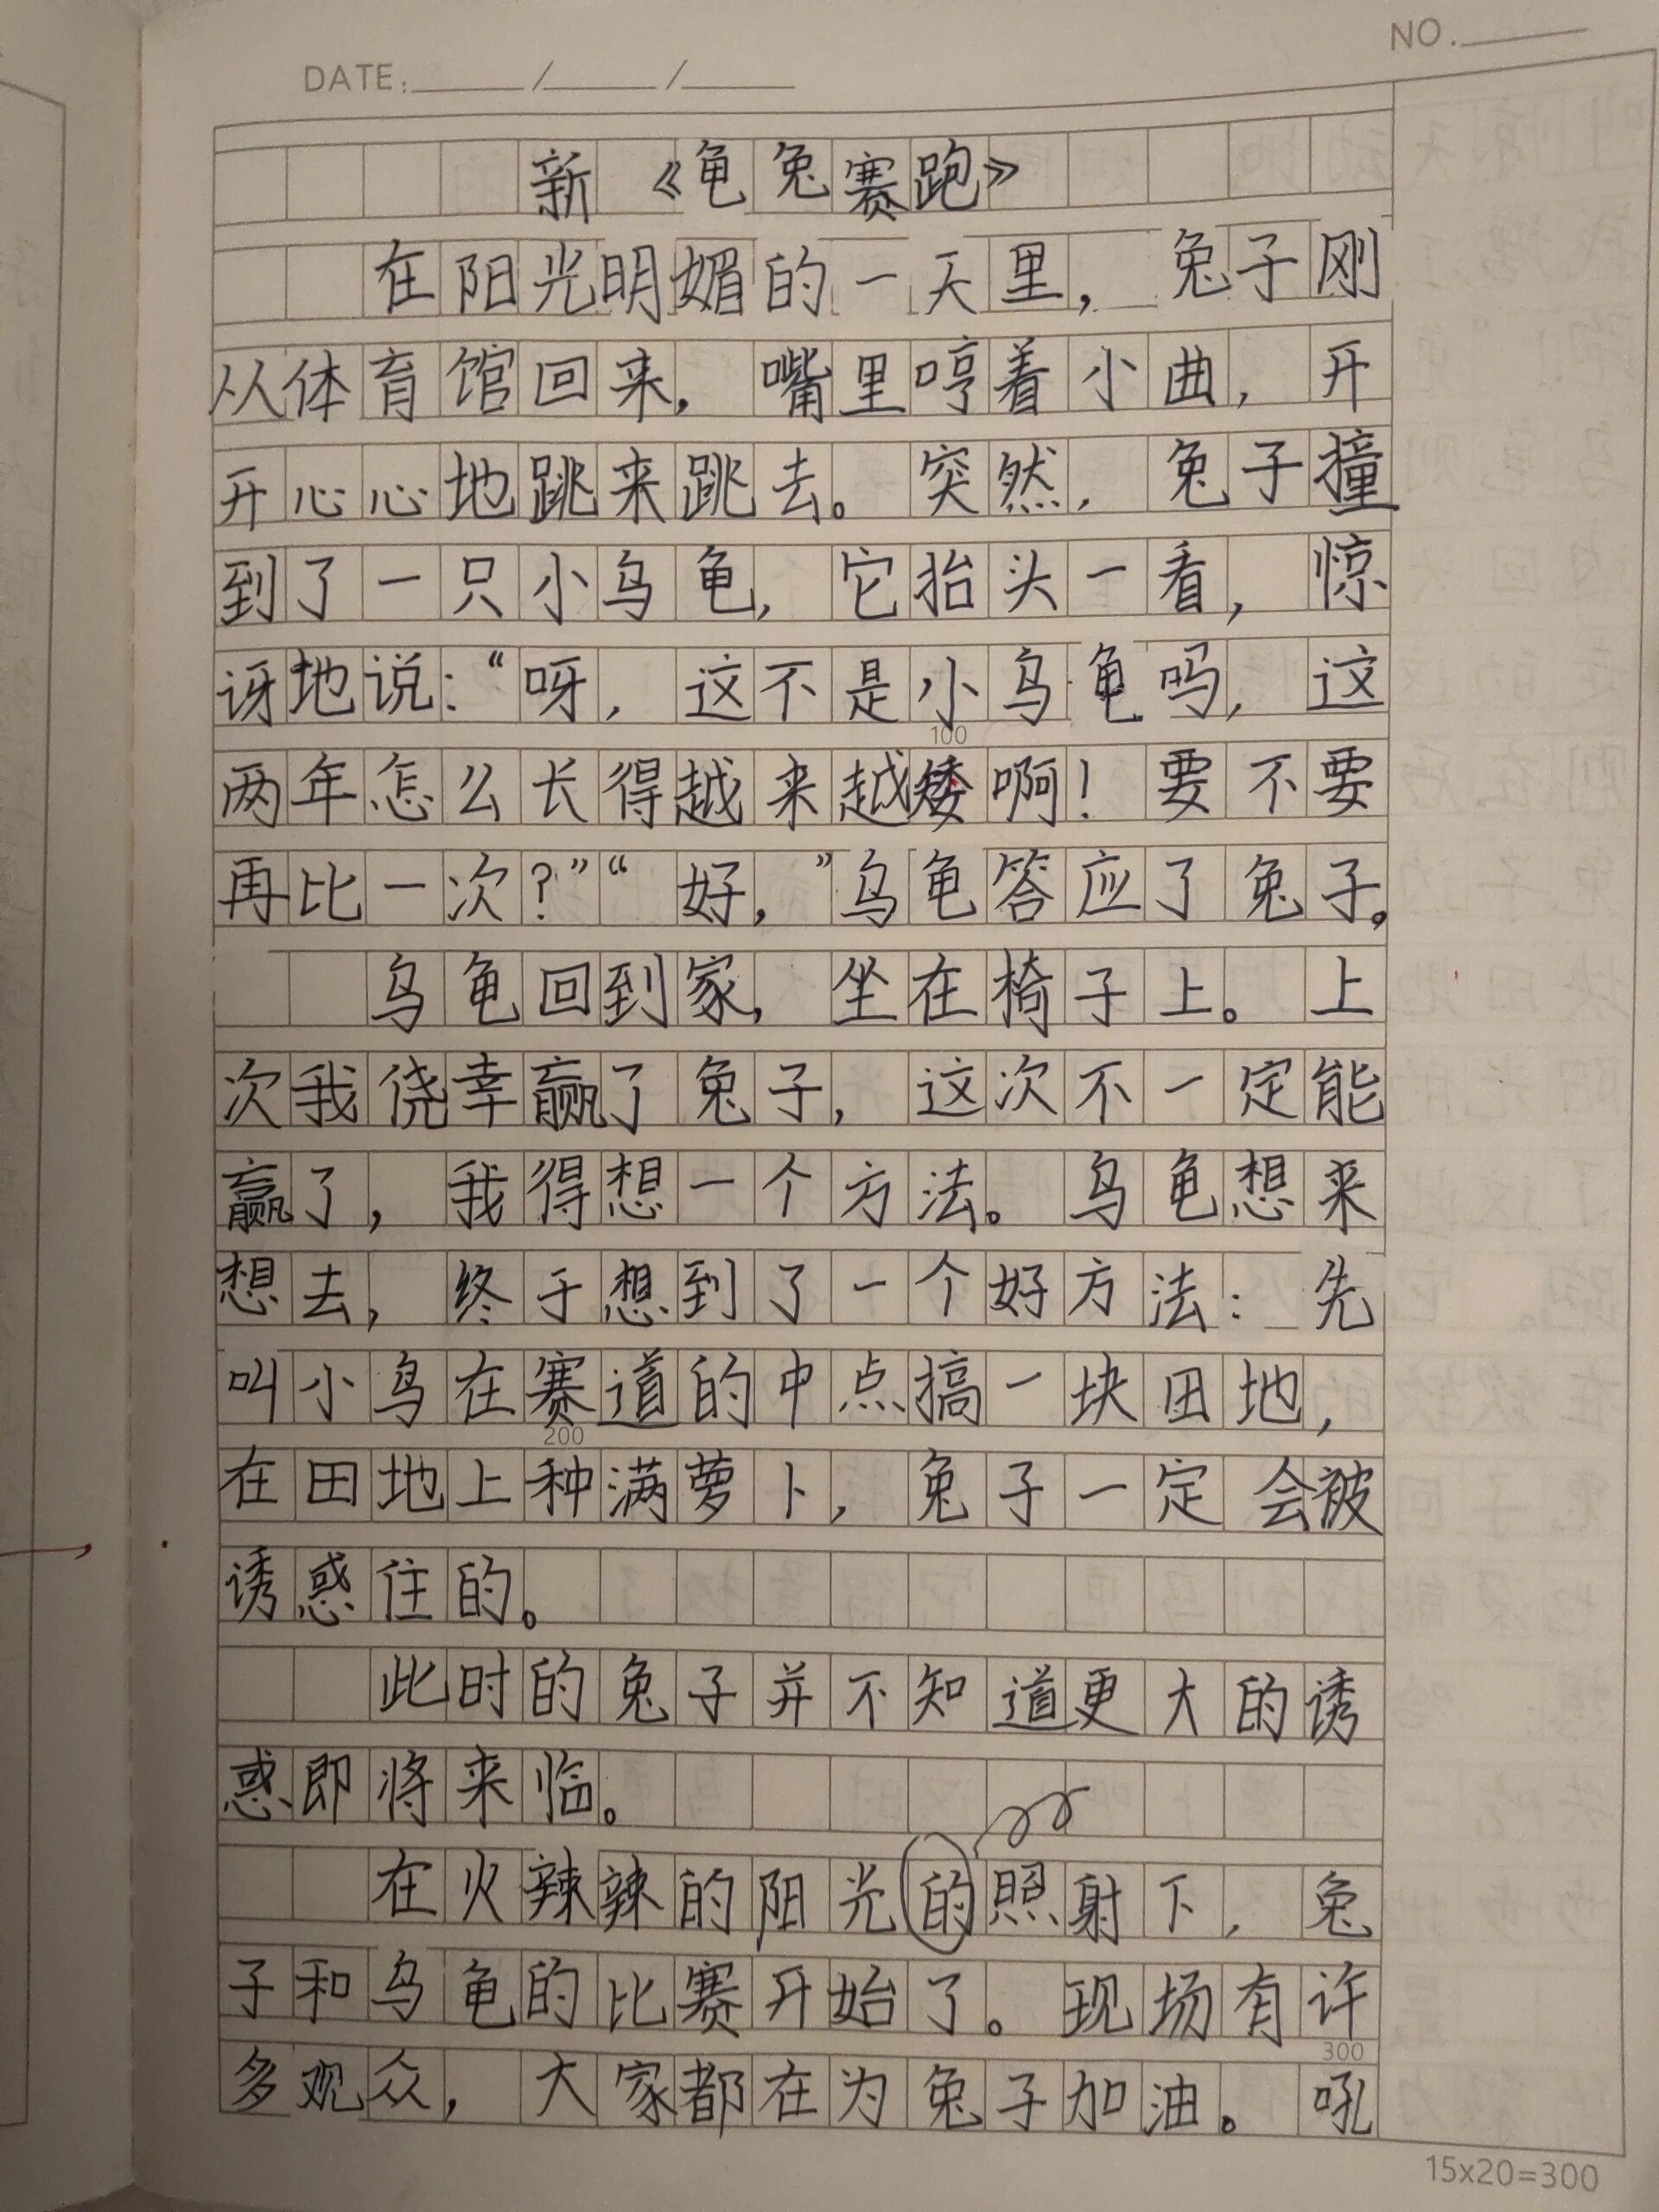 NO.
DATE: / /
新《龟兔赛跑》
在阳光明媚的一天里，兔子刚
从体育馆回来，嘴里哼着小曲，开
开心心地跳来跳去。突然，兔子撞
到了一只小乌龟，它抬头一看，惊
讶地说：“呀，这不是小乌龟吗，这
100
两年怎么长得越来越矮啊！要不要
再比一次？”“好，”乌龟答应了兔子。
乌龟回到家，坐在椅子上。上
次我侥幸赢了兔子，这次不一定能
赢了，我得想一个方法。乌龟想来
想去，终于想到了一个好方法：先
叫小鸟在赛道的中点搞一块田地，
200
在田地上种满萝卜，兔子一定会被
诱惑住的。
此时的兔子并不知道更大的诱
惑即将来临。
在火辣辣的阳光的照射下，兔
子和乌龟的比赛开始了。现场有许
300
多观众，大家都在为兔子加油。吼
15x20=300